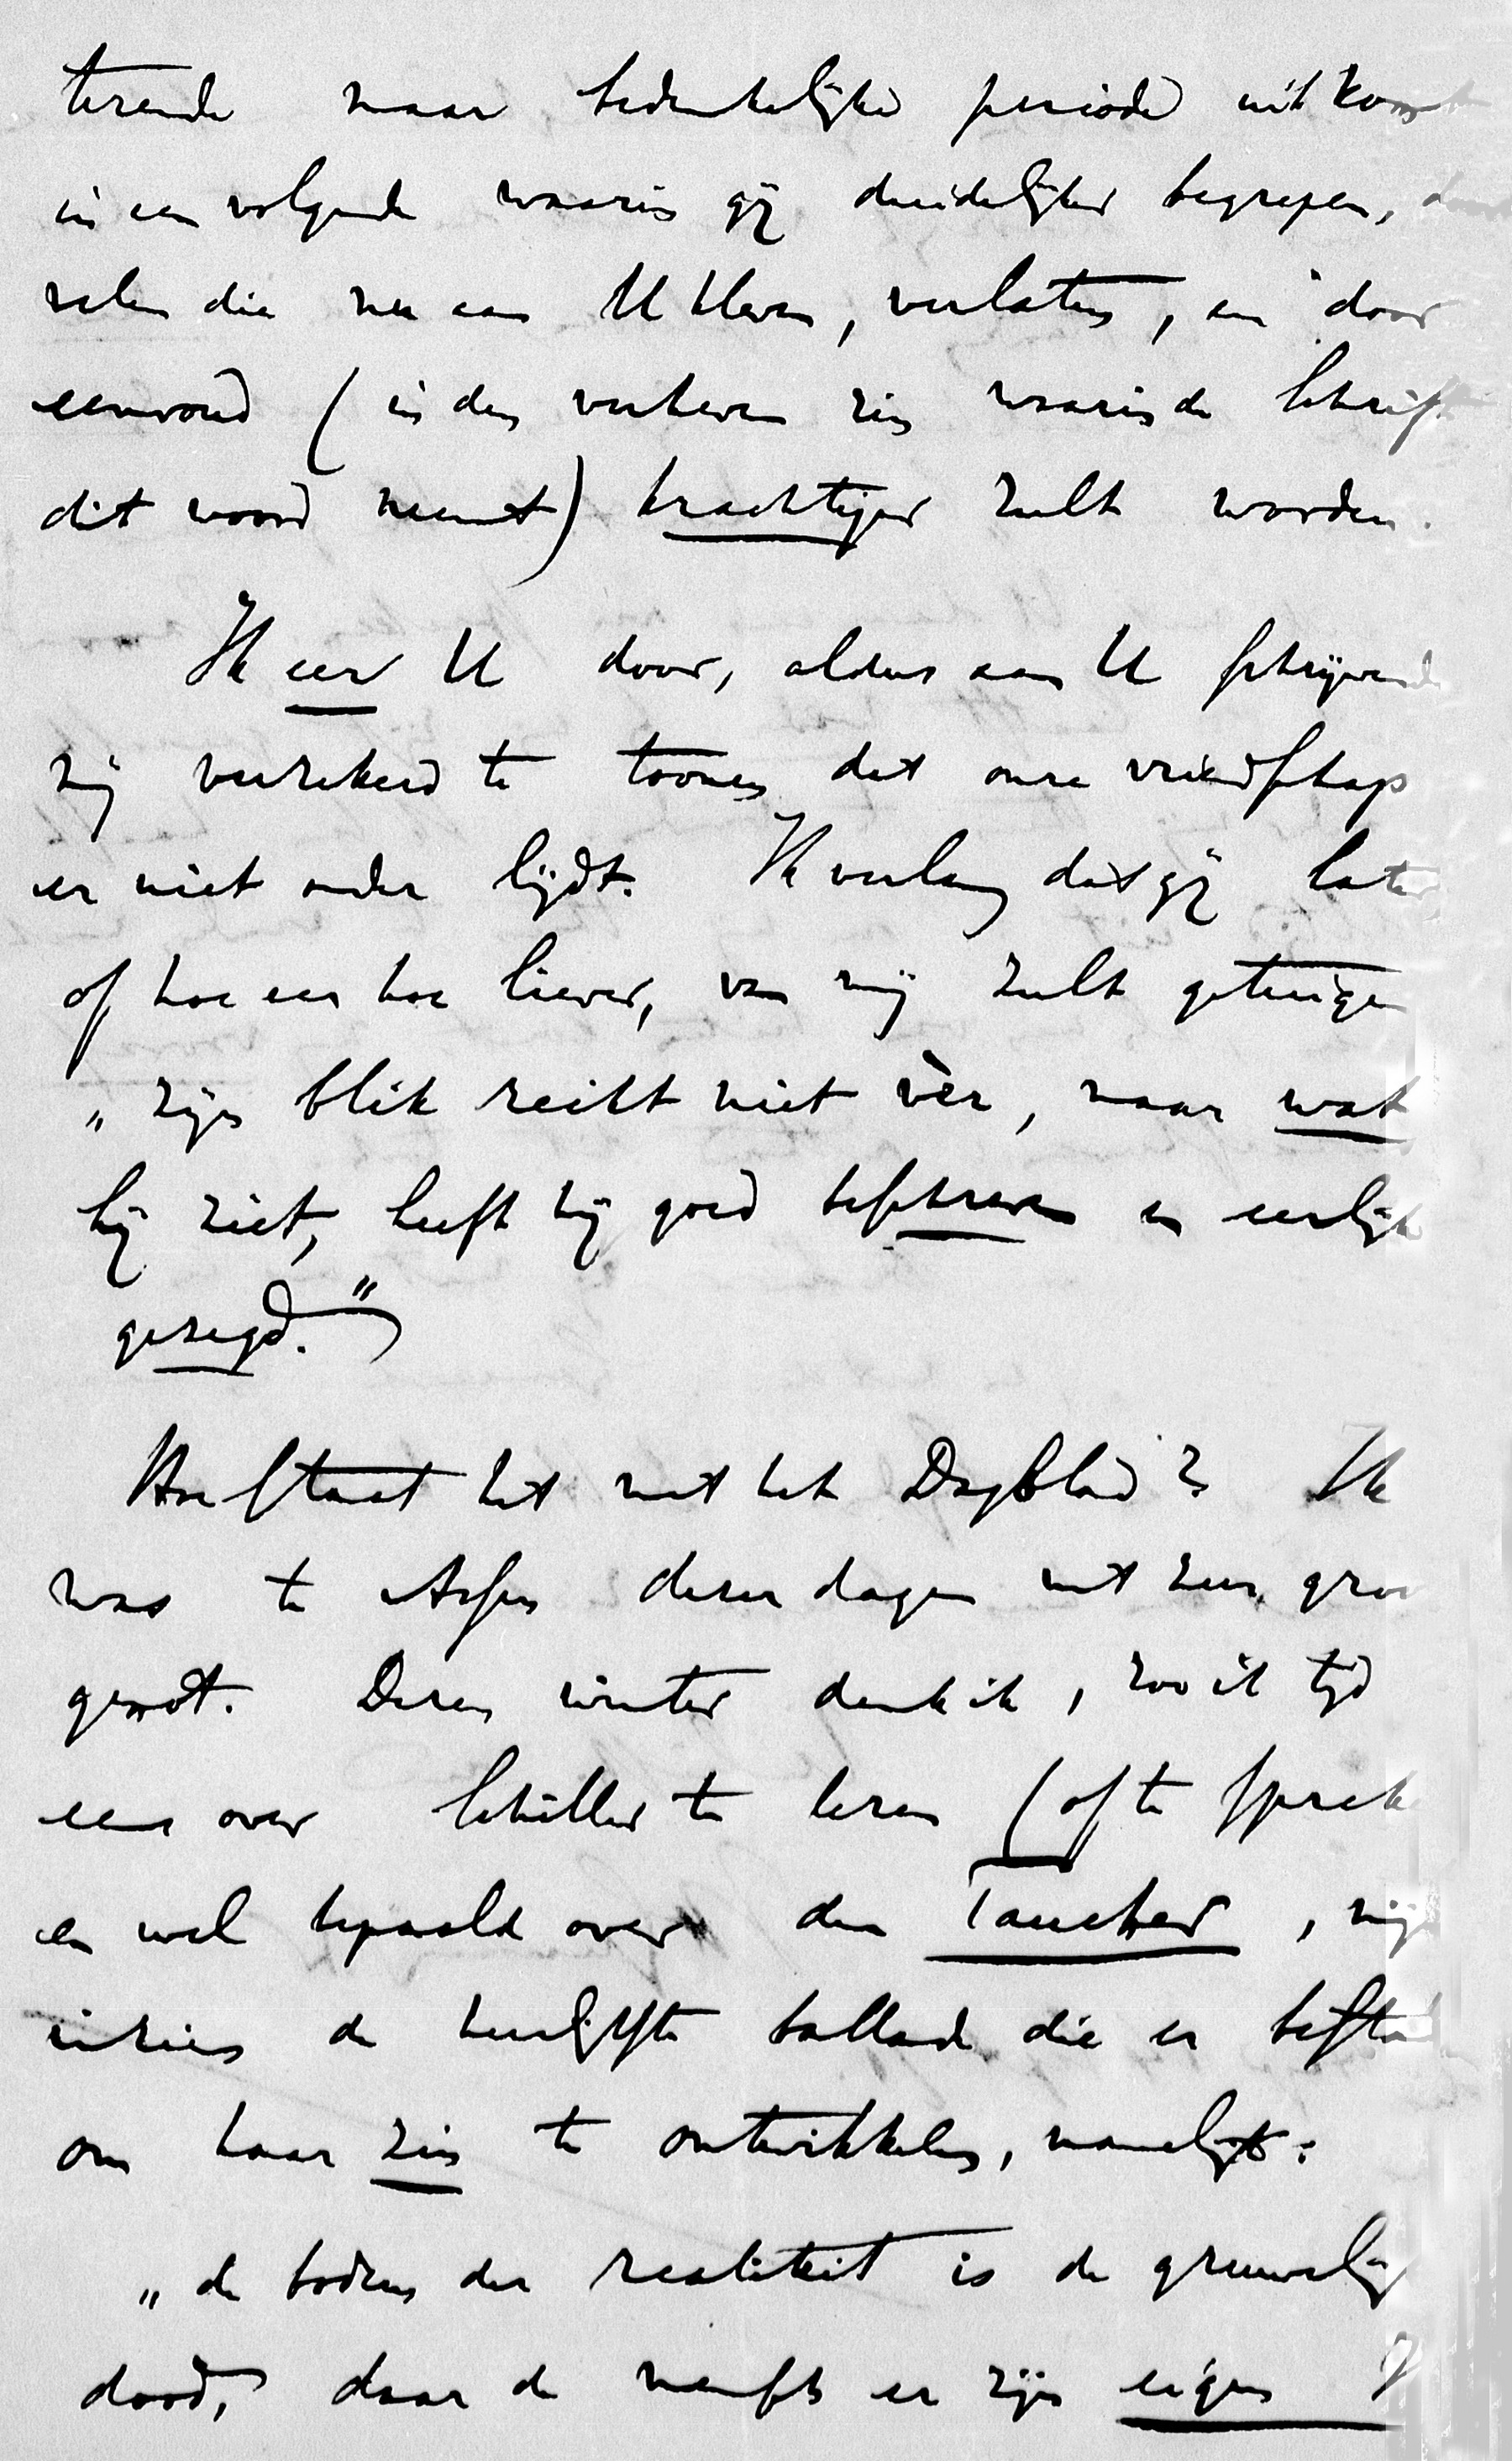 terende maar bedenkelijke periode uit komt
in een volgende waarin gij duidelijker begrepen,
velen die nu aan U kleven, verlaten, en door
eenvoud (in den verheven zin waarin de Schrift
dit woord neemt) krachtiger zult worden.
Ik eer U door, aldus aan U schrijvend
mij verzekerd te toonen dat onze vriendschap
er niet onder lijdt. Ik verlang dat gij later
of hoe eer hoe liever, van mij zult getuigen
„zijn blik reikt niet vèr, maar wat
hij ziet, heeft hij goed beschreven en eerlijk
gezegd."
Hoe staat het met het Dagblad? Ik
was te Assen dezer dagen met zeer groo
genot. Dezen winter denk ik, zoo ik tijd
eens over Schiller te lezen (of te spreke
en wel bepaald over den Taucher, mij
inziens de heerlijkste ballade die er besta
om haar zin te ontwikkelen, namelijk:
„de bodem der realiteit is de gruwelij
dood, daar de mensch er zijn eigen